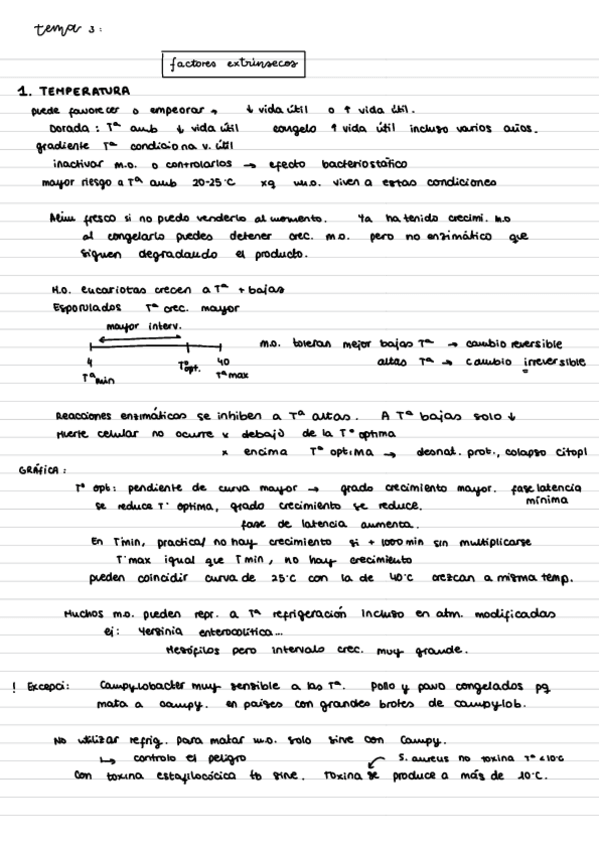 tema 3:
factores extrínsecos
1. TEMPERATURA
puede favorecer o empeorar → ↓ vida útil o ↑ vida útil.
Dorada: Tª amb ↓ vida útil congelo ↑ vida útil incluso varios años.
gradiente Tª condiciona v. útil
inactivar m.o. o controlarlos → efecto bacteriostático
mayor riesgo a Tª amb 20-25°C xq m.o. viven a estas condiciones
Alim fresco si no puedo venderlo al momento. Ya ha tenido crecimi. m.o
al congelarlo puedes detener crec. m.o. pero no enzimático que
siguen degradando el producto.
M.O. eucariotas crecen a Tª + bajas
Esporulados Tª crec. mayor
mayor interv.
m.o. toleran mejor bajas Tª → cambio reversible
4 Tªopt. 40 altas Tª → cambio irreversible
Tªmin Tªmax
Reacciones enzimáticas se inhiben a Tª altas. A Tª bajas solo ↓
Muerte celular no ocurre x debajo de la Tª optima
x encima Tª optima → desnat. prot., colapso citopl
GRÁFICA:
Tª opt: pendiente de curva mayor → grado crecimiento mayor. fase latencia
mínima
se reduce Tª optima, grado crecimiento se reduce.
fase de latencia aumenta.
En Tmin, practica/ no hay crecimiento si + 1000 min sin multiplicarse
Tª max igual que T min, no hay crecimiento
pueden coincidir curva de 25°C con la de 40°C crezcan a misma temp.
Muchos m.o. pueden repr. a Tª refrigeración incluso en atm. modificadas
ej: Yersinia enterocolitica...
Mesófilos pero intervalo crec. muy grande.
! Excepci: Campylobacter muy sensible a las Tª. Pollo y pavo congelados pq
mata a campy. en paises con grandes brotes de campylob.
No utilizar refrig. para matar m.o. solo sirve con Campy.
↳ controlo el peligro S. aureus no toxina Tª <10°C
Con toxina estafilocócica tb sirve. Toxina se produce a más de 10°C.